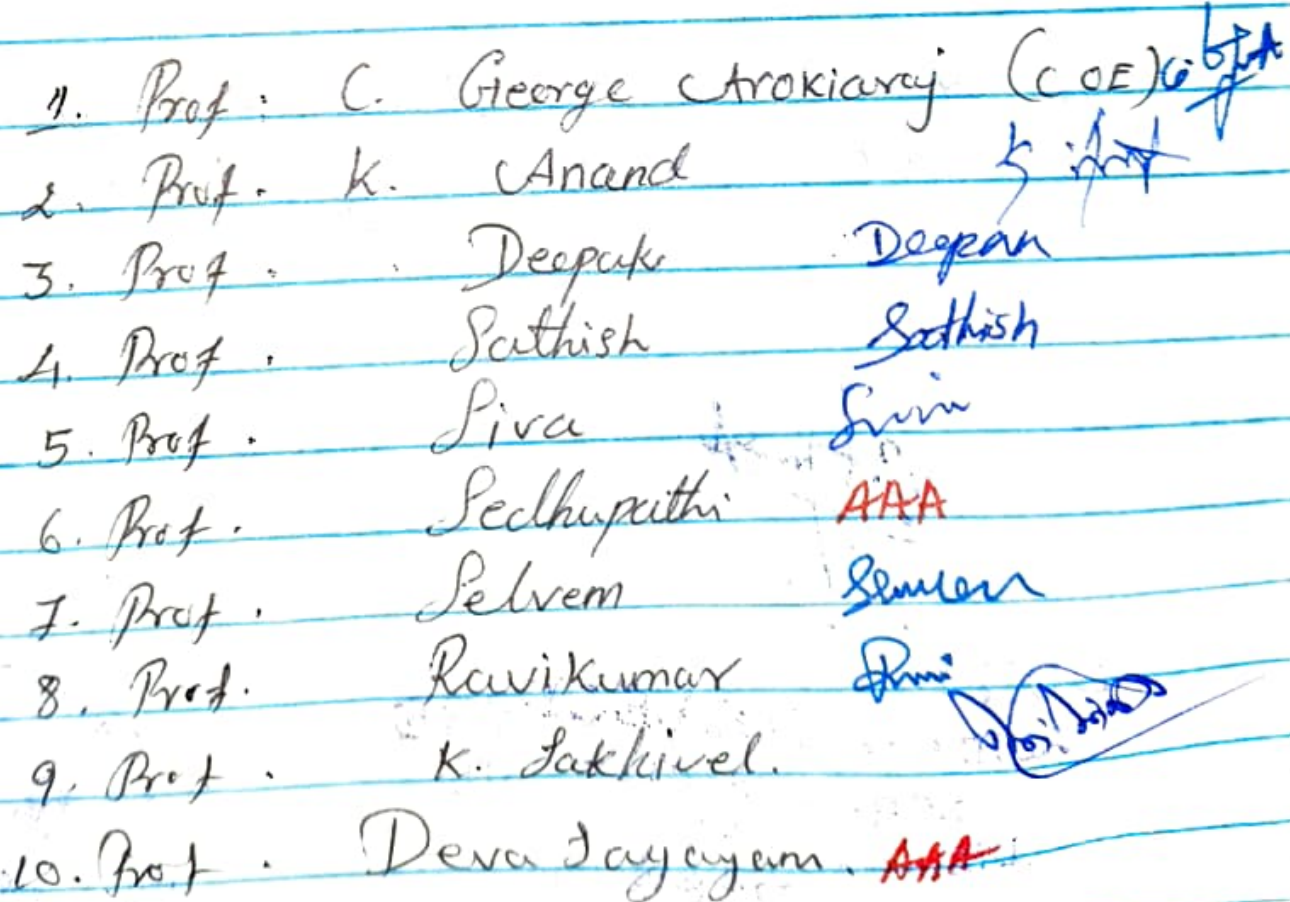 1. Prof: C. George Arokiaraj (COE)
2. Prof. K. Anand
3. Prof. Deepak Deepan
4. Prof. Sathish Sathish
5. Prof. Siva
6. Prof. Sedhupathi AAA
7. Prof. Selvem
8. Prof. Ravikumar
9. Prof. K. Sakhivel.
10. Prof. Deva AAA